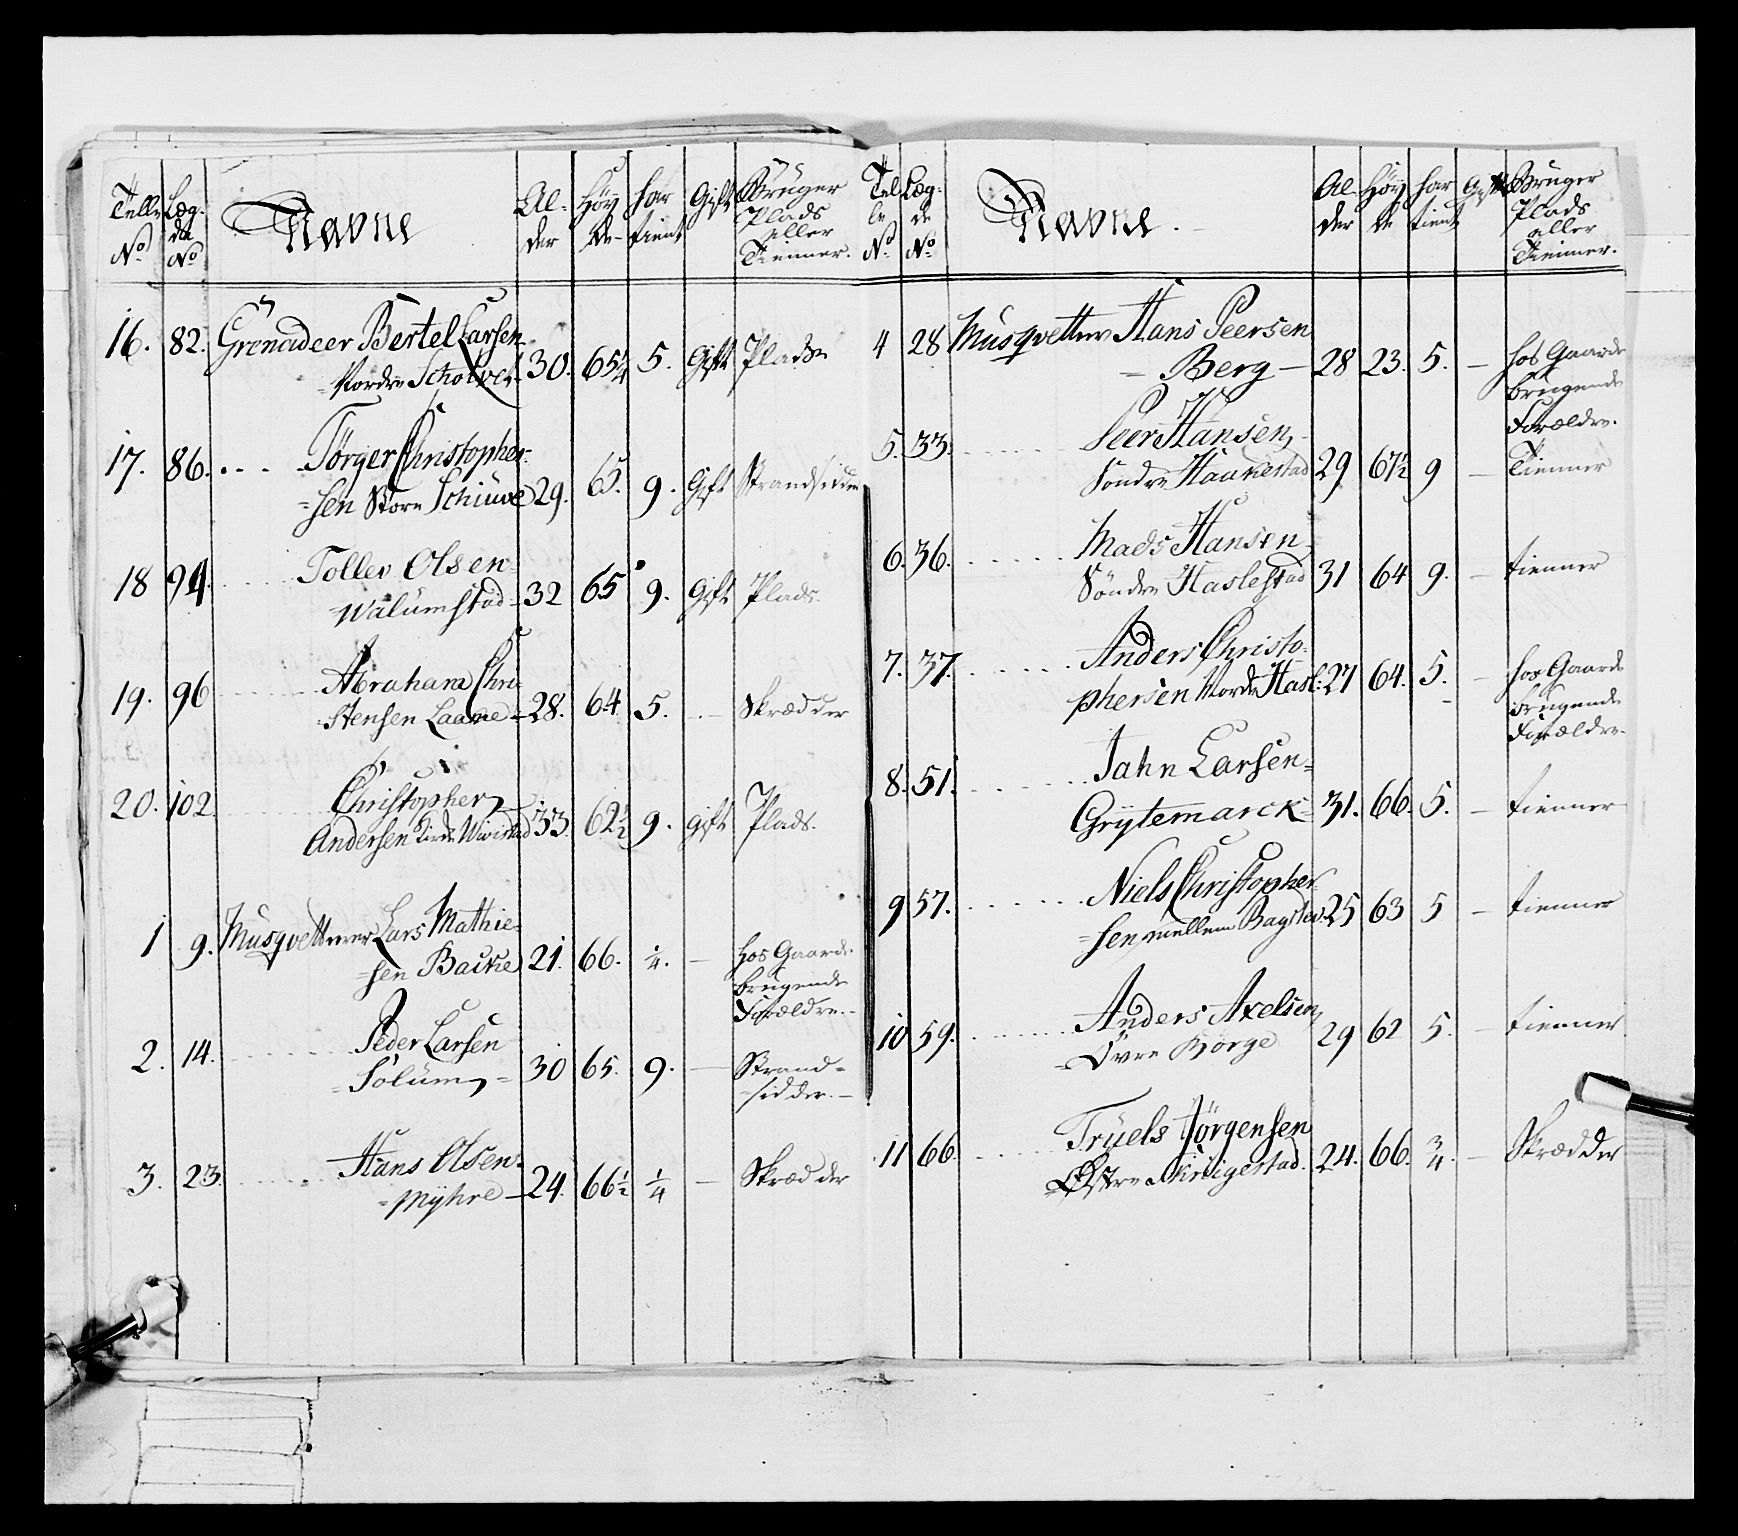 Telle Læg- Navne Al- Høy har Gift Bruger
No de der de tient Plads
No eller
Tienner.
16. 82. Grenadeer Bertel Larsen
Nordre Scholve 30. 65¼ 5. Gift Plads
17. 86. Törger Christopher-
sen Store Schiuve 29. 65. 9. Gift Strandsidder
18 94. Tollev Olsen
Walumstad 32 65 9. Gift Plads.
19. 96 Abraham Chri-
stensen Laane 28. 64. 5. - Skrædder
20. 102. Christopher
Andersen 33. 62½ 9. gift Plads.
1 9. Musqvetterer Lars Mathie-
sen Backe 21. 66. ¼. - hos Gaard
brugende
Forældre.
2. 14. Peder Larsen
Solum 30 65. 9. - Strand-
sidder.
3. 23. Hans Olsen
Myhre 24. 66½ ¼ - Skrædder
Tel- Læg- Navne. Al- Høy har Gift Bruger
le de der de tient Plads
No No eller
Tienner.
4 28 Musqvetterer Hans Peersen
Berg 28 23. 5. - hos Gaard
brugende
Forældre.
5. 33. Peer Hansen
Söndre Haanestad 29 67½ 9 - Tienner
6. 36. Mads Hansen
Söndre Haslestad 31 64 9. - tienner
7. 37. Anders Christo-
phersen Nordre Hasl: 27 64. 5. - hos Gaard
brugende
Forældre.
8. 51. Jahn Larsen
Grytemarck 31. 66. 5. - tienner
9 57. Niels Christopher-
sen mellem Bagstev: 25 63 5 - tienner
10 59. Anders Axelsen
Övre Borge 29 62 5. - tienner
11 66. Truels Jörgensen
Østre 24. 66. ¾. - Skrædder